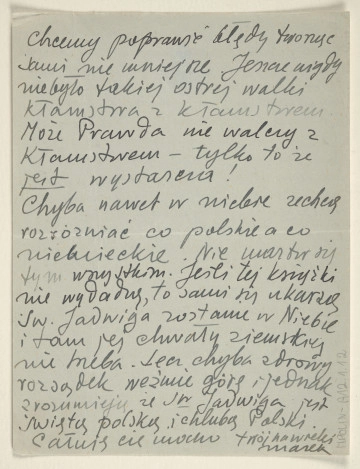 Chcemy poprawić błędy tworząc
sami nie mniejsze Jeszcze nigdy
niebyło takiej ostrej walki
kłamstwa z kłamstwem.
Może Prawda nie walczy z
kłamstwem – tylko to że
jest wystarcza!
Chyba nawet w niebie zechcą
rozróżniać co polskie a co
niemieckie. Nie martw się
tym wszystkim. Jeśli tej książki
nie wydadzą, to sami się ukarzą
Św. Jadwiga zostanie w Niebie
i tam jej chwały ziemskiej
nie trzeba. Lecz chyba zdrowy
rozsądek weźmie górę i jednak
zrozumieją że św Jadwiga jest
świętą polską i chlubą Polski
Całuję cię mocno twój
marek